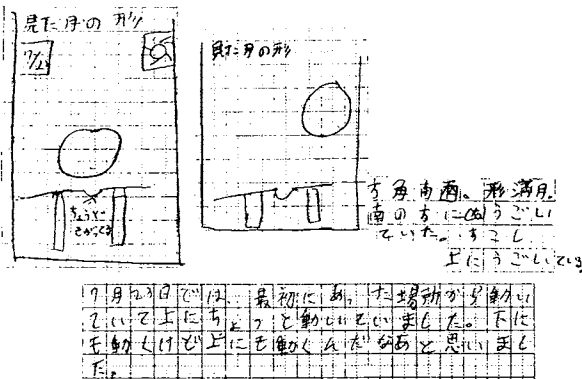 見た月の形
7/23
ちょうど
さがってる
見た月の形
方角南西。形満月。
南の方に うごい
ていた。すこし
上にうごいている
7月23日では、最初にあった場所から動い
ていて上にちょっと動いていました。下に
も動くけど上にも動くんだなあと思いまし
た。